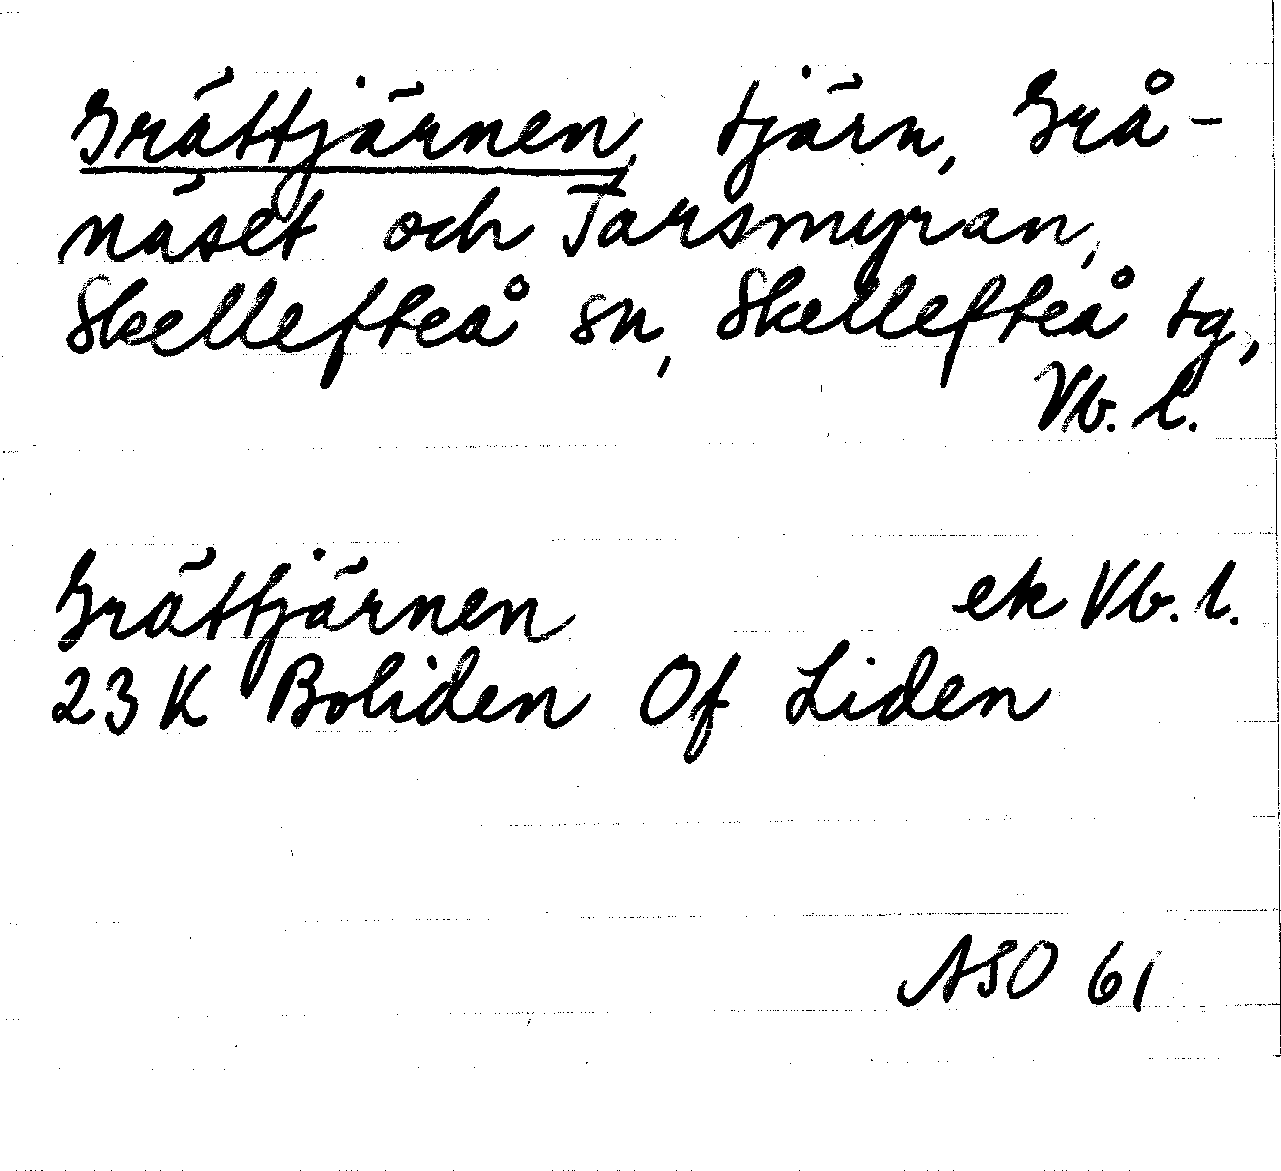 Grättjärnen, tjärn, Grå-
näset och Tarsmyran,
Skellefteå sn, Skellefteå tg,
Vb. l.
Grättjärnen ek Vb. l.
23 K Boliden Of Liden
ASO 61